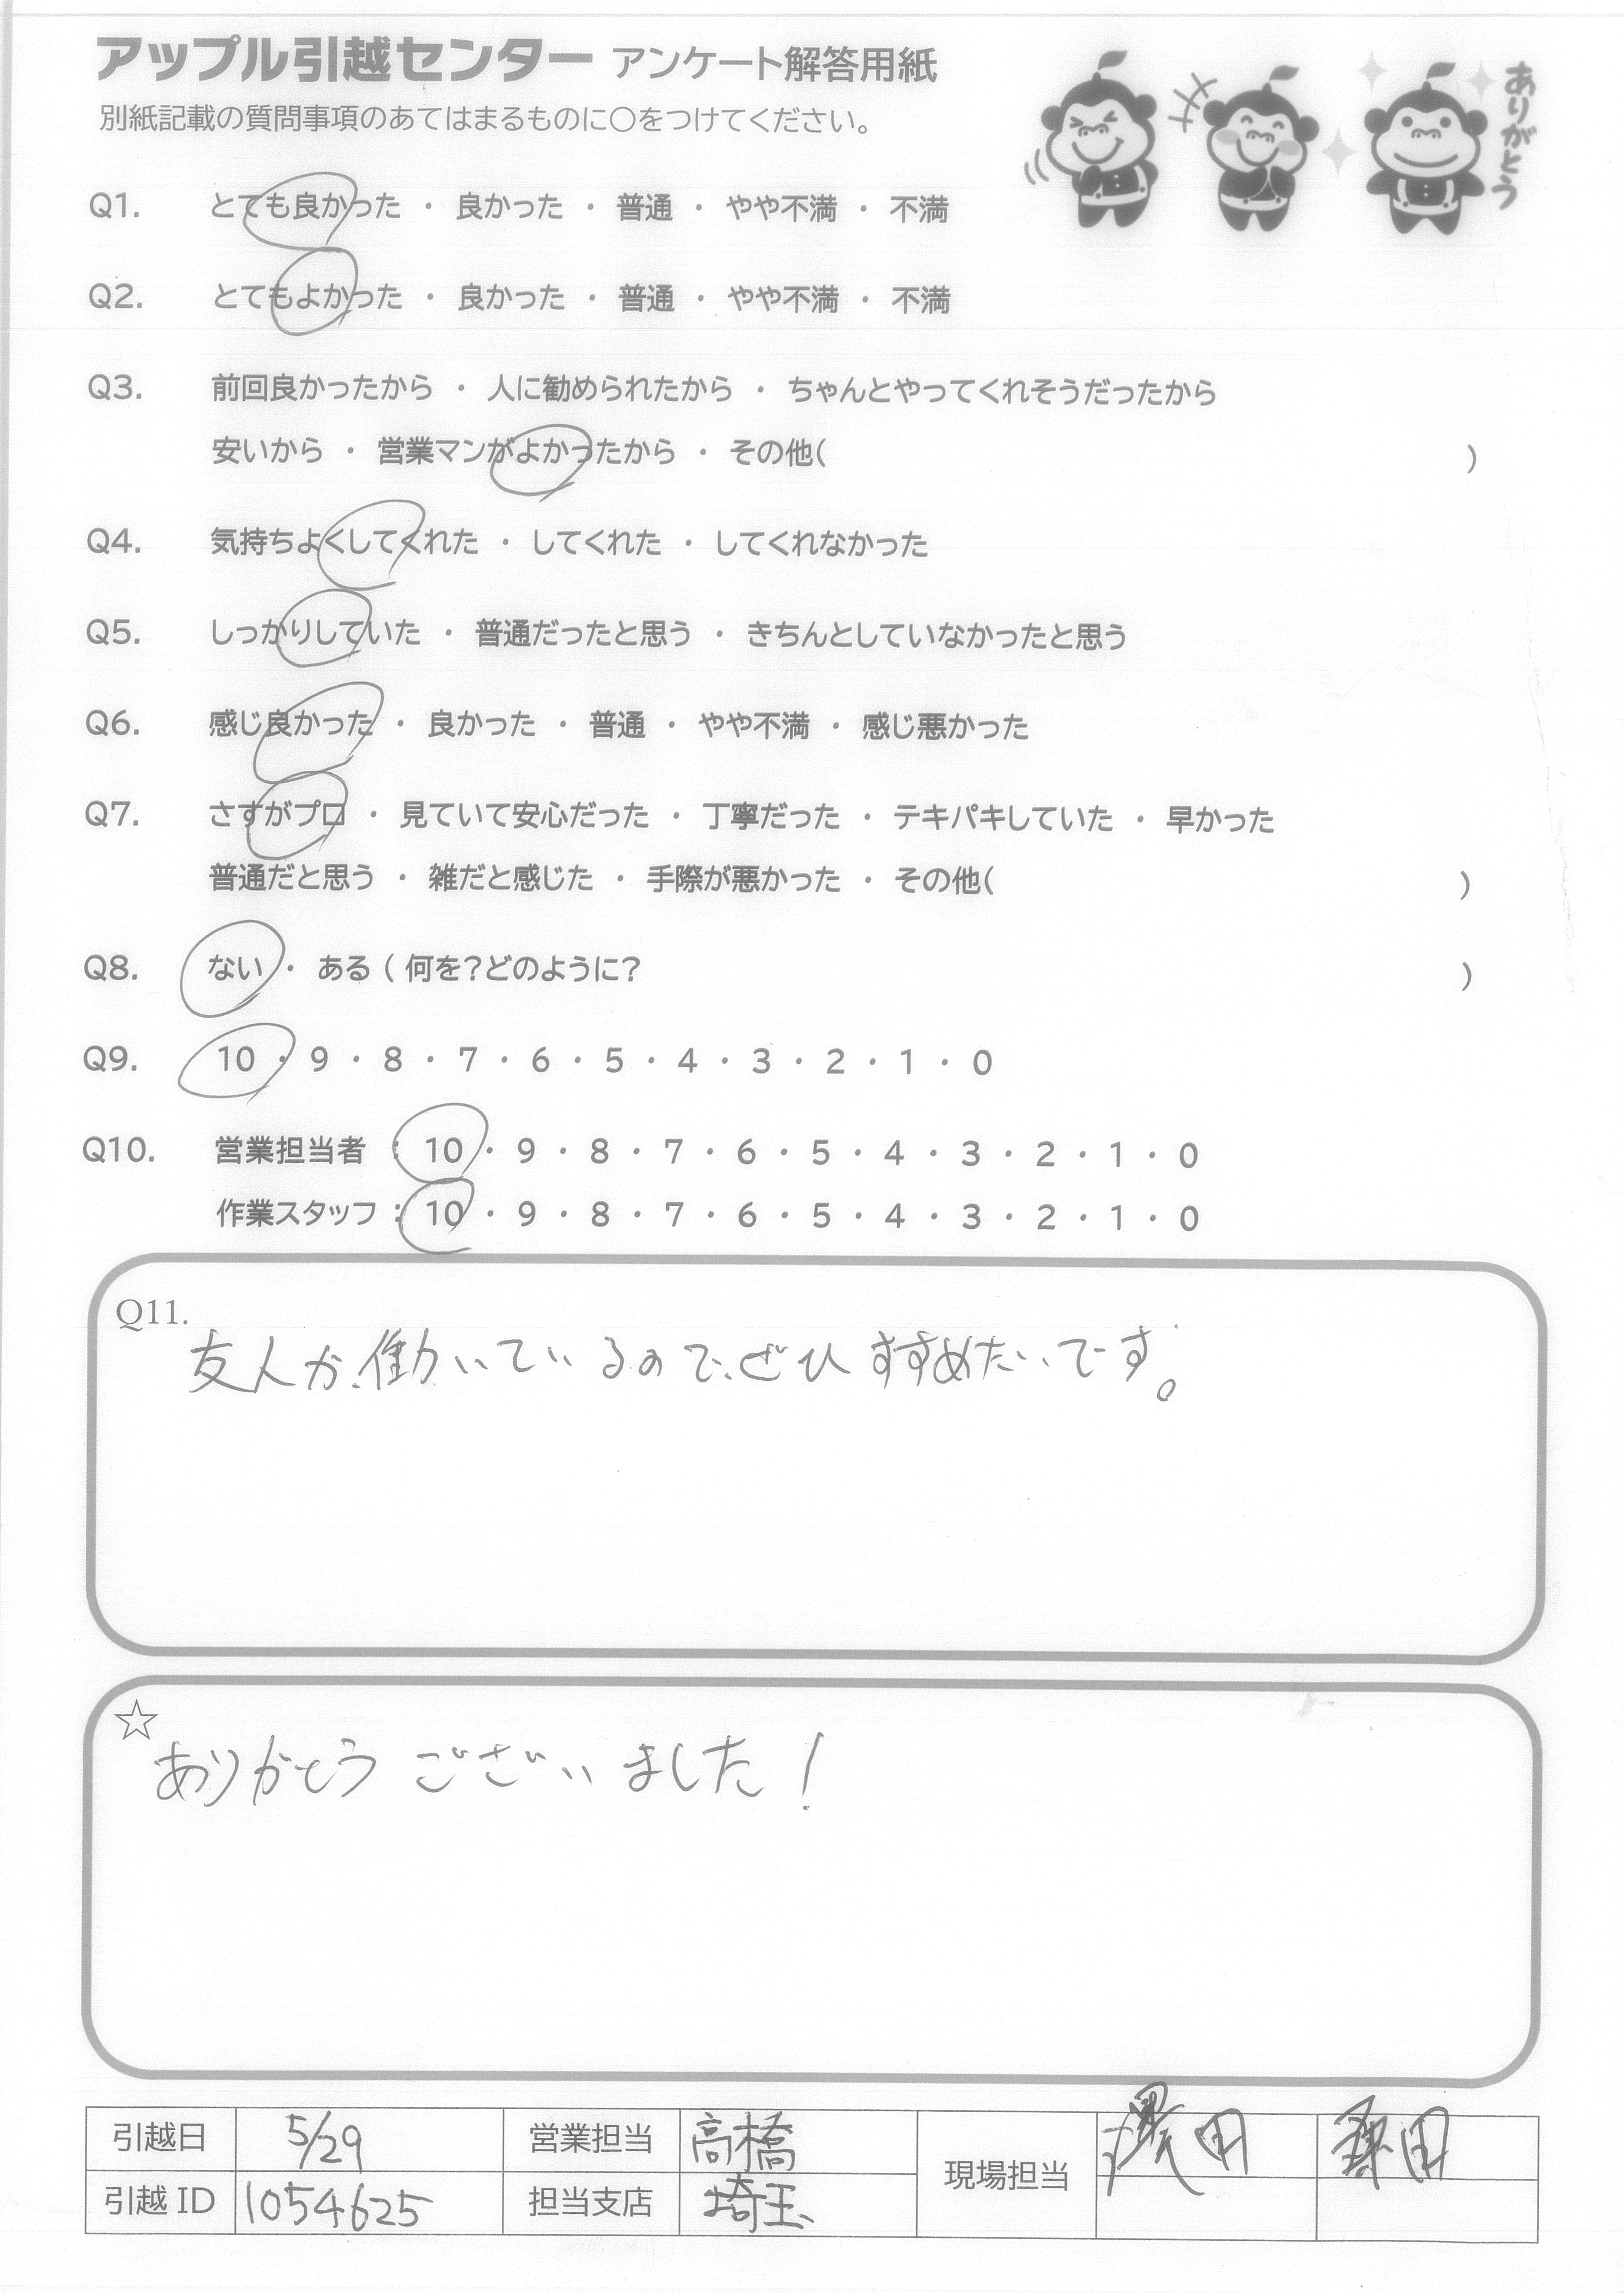 アップル引越センター アンケート解答用紙
別紙記載の質問事項のあてはまるものに○をつけてください。
ありがとう
Q1. とても良かった ・ 良かった ・ 普通 ・ やや不満 ・ 不満
Q2. とてもよかった ・ 良かった ・ 普通 ・ やや不満 ・ 不満
Q3. 前回良かったから ・ 人に勧められたから ・ ちゃんとやってくれそうだったから
安いから ・ 営業マンがよかったから ・ その他( )
Q4. 気持ちよくしてくれた ・ してくれた ・ してくれなかった
Q5. しっかりしていた ・ 普通だったと思う ・ きちんとしていなかったと思う
Q6. 感じ良かった ・ 良かった ・ 普通 ・ やや不満 ・ 感じ悪かった
Q7. さすがプロ ・ 見ていて安心だった ・ 丁寧だった ・ テキパキしていた ・ 早かった
普通だと思う ・ 雑だと感じた ・ 手際が悪かった ・ その他( )
Q8. ない ・ ある ( 何を?どのように? )
Q9. 10 ・ 9 ・ 8 ・ 7 ・ 6 ・ 5 ・ 4 ・ 3 ・ 2 ・ 1 ・ 0
Q10. 営業担当者 : 10 ・ 9 ・ 8 ・ 7 ・ 6 ・ 5 ・ 4 ・ 3 ・ 2 ・ 1 ・ 0
作業スタッフ : 10 ・ 9 ・ 8 ・ 7 ・ 6 ・ 5 ・ 4 ・ 3 ・ 2 ・ 1 ・ 0
Q11.
友人が働いているのでぜひすすめたいです。
☆
ありがとうございました!
引越日 5/29 営業担当 高橋 現場担当 澤田
引越ID 1054625 担当支店 埼玉